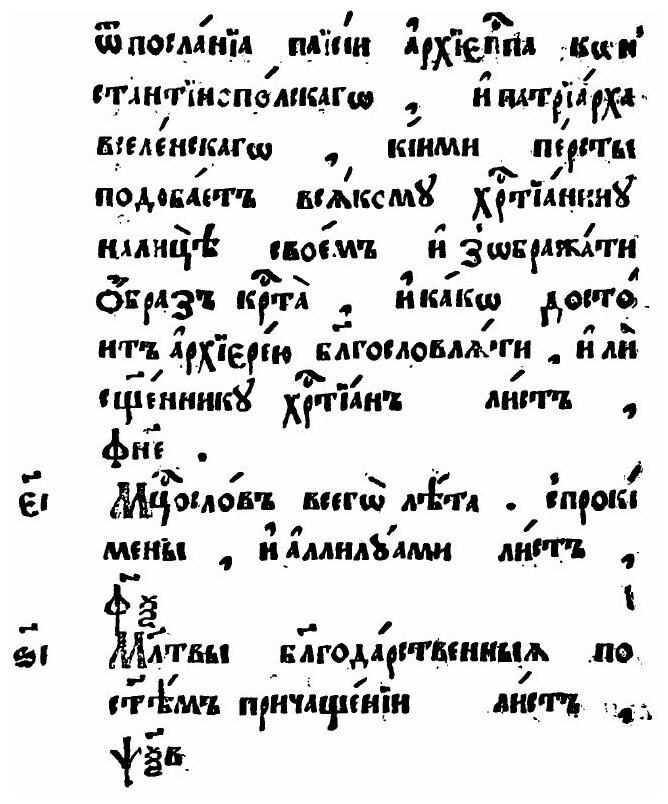 Ѿ посла́нїѧ паїсі́и а҆рхїепⷭ҇па кѡнˈ
стантїнопо́лскагѡ , и҆ патрїа́рха
вселе́нскагѡ , кі́ими пе́рсты
подоба́етъ всѧ́комꙋ хрⷭ҇тїа́нинꙋ
на лицѣ̀ свое́мъ и҆ зѡбража́ти
ѻ҆́браз крⷭ҇та̀ , и҆ ка́кѡ досто́
итъ а҆рхїере́ю бл҃гословлѧ́ти , и҆ лѝ
сщ҃е́нникꙋ хрⷭ҇тїа́нъ ли́стъ ,
ф҃не .
є҃і Мцⷭ҇осло́въ всегѡ̀ лѣ́та . спрокі́
мены , и҆ а҆ллилꙋ́ами ли́стъ ,
ф҃ѯ
ѕ҃і Мл҃твы бл҃года́рственныѧ по
ст҃ѣ́мъ причаще́нїи ли́стъ ,
ѱ҃ѯв